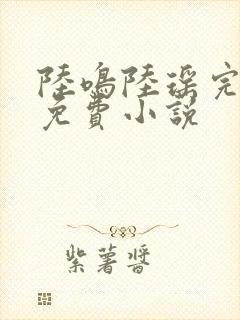 陸鳴陸瑶完
免費小說
紫薯醬